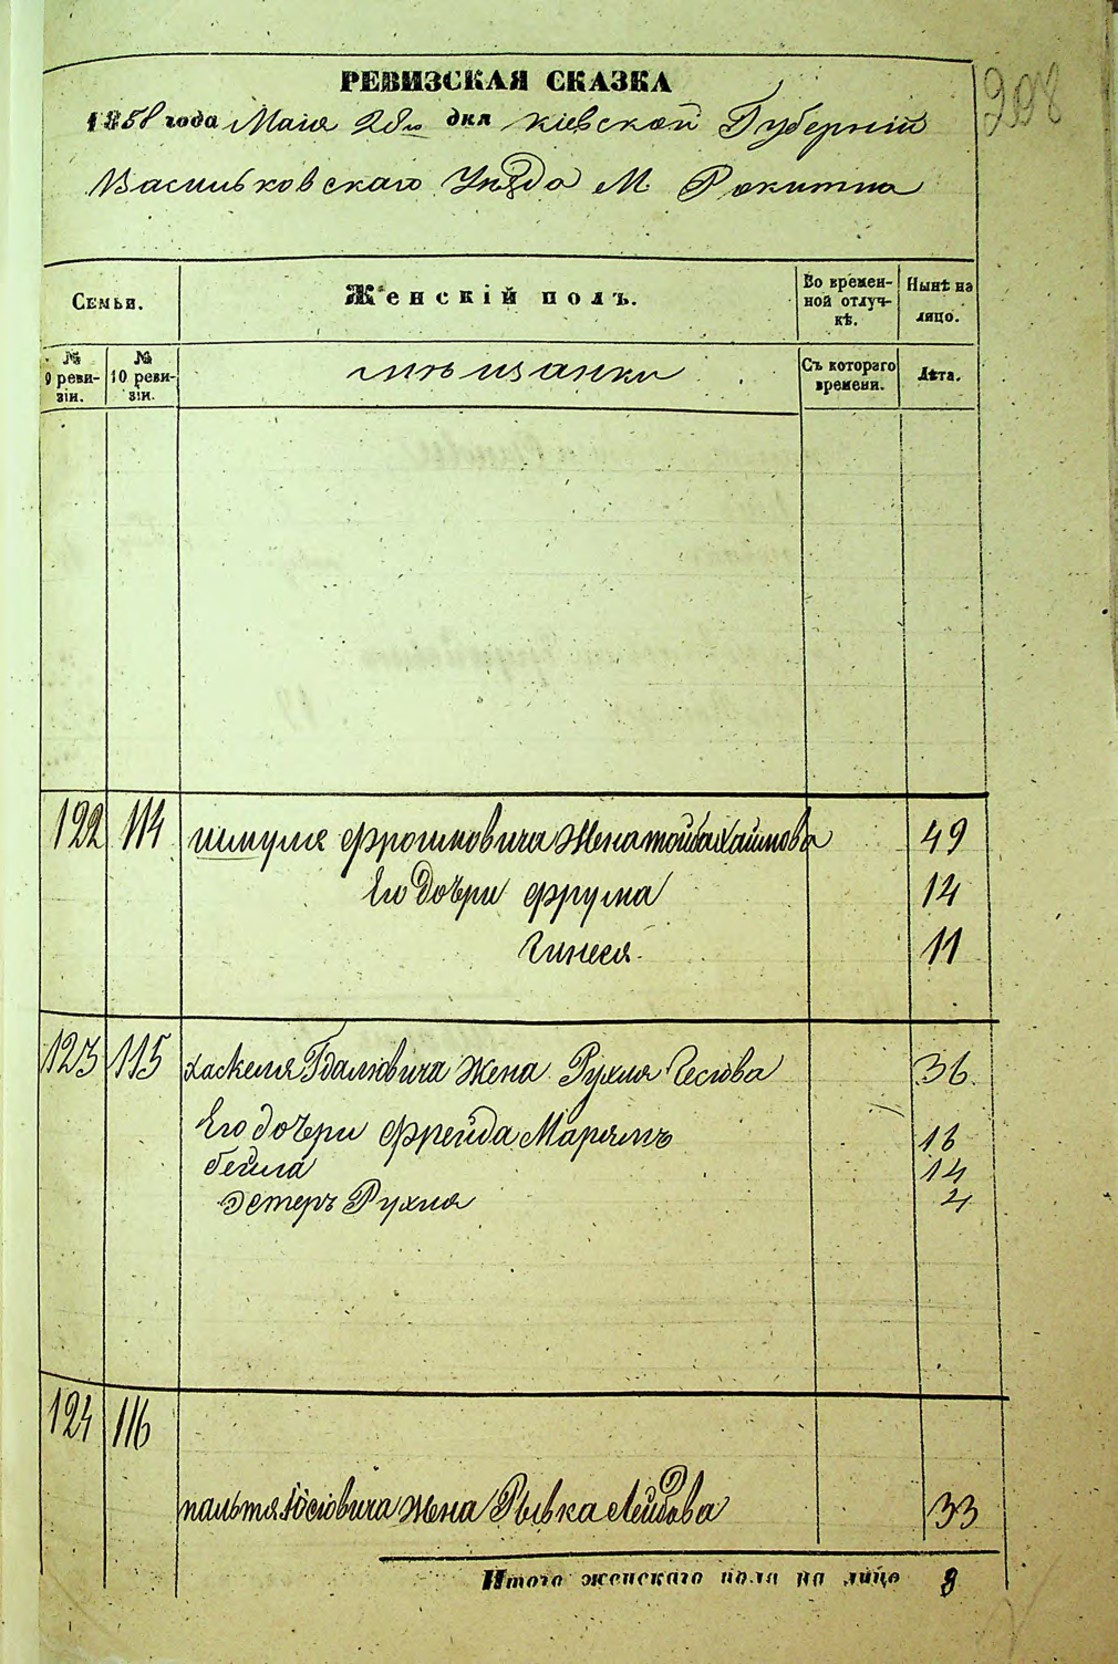 208
РЕВИЗСКАЯ СКАЗКА
1858 года Маія 28го дня Кіевской Губерніи
Васильковскаго Уѣзда М. Рокитна
Семьи.
Женскій полъ.
Во временной отлучкѣ.
Нынѣ на лицо.
№ 9 ревизіи.
№ 10 ревизіи.
мѣщанки
Съ котораго времени.
Лѣта.
122 114 Шмуля Фроимовича Жена Тойба Хаимова 49
Его Дочери Фрума 14
Гинеся 11
123 115 Хаскеля Гдалювича Жена Рухля 36
Его дочери Фрейда Марьямъ 16
бейла 14
Эстеръ Рухля 4
124 116
Іосіовича жена Рывка Лейбова 33
Итого женскаго пола на лице 8